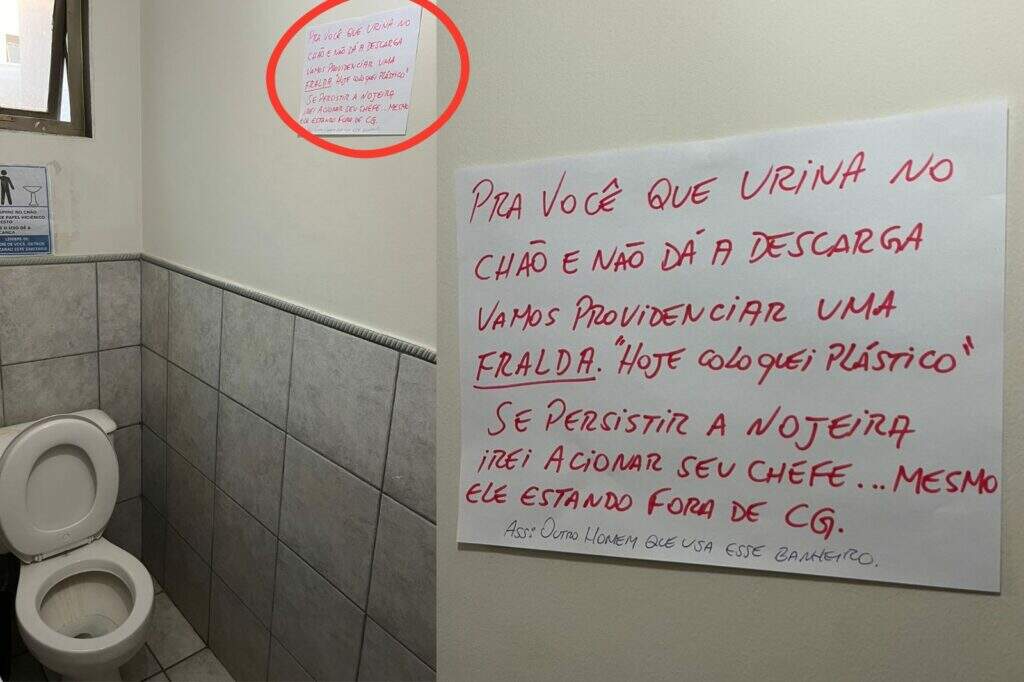 PRA VOCÊ QUE URINA NO
CHÃO E NÃO DÁ A DESCARGA
VAMOS PROVIDENCIAR UMA
FRALDA. "HOJE COLOQUEI PLÁSTICO"
SE PERSISTIR A NOJEIRA
IREI ACIONAR SEU CHEFE...MESMO
ELE ESTANDO FORA DE CG.
PAPEL HIGIÊNICO
PRA VOCÊ QUE URINA NO
CHÃO E NÃO DÁ A DESCARGA
VAMOS PROVIDENCIAR UMA
FRALDA. "HOJE COLOQUEI PLÁSTICO"
SE PERSISTIR A NOJEIRA
IREI ACIONAR SEU CHEFE...MESMO
ELE ESTANDO FORA DE CG.
ASS: OUTRO HOMEM QUE USA ESSE BANHEIRO.